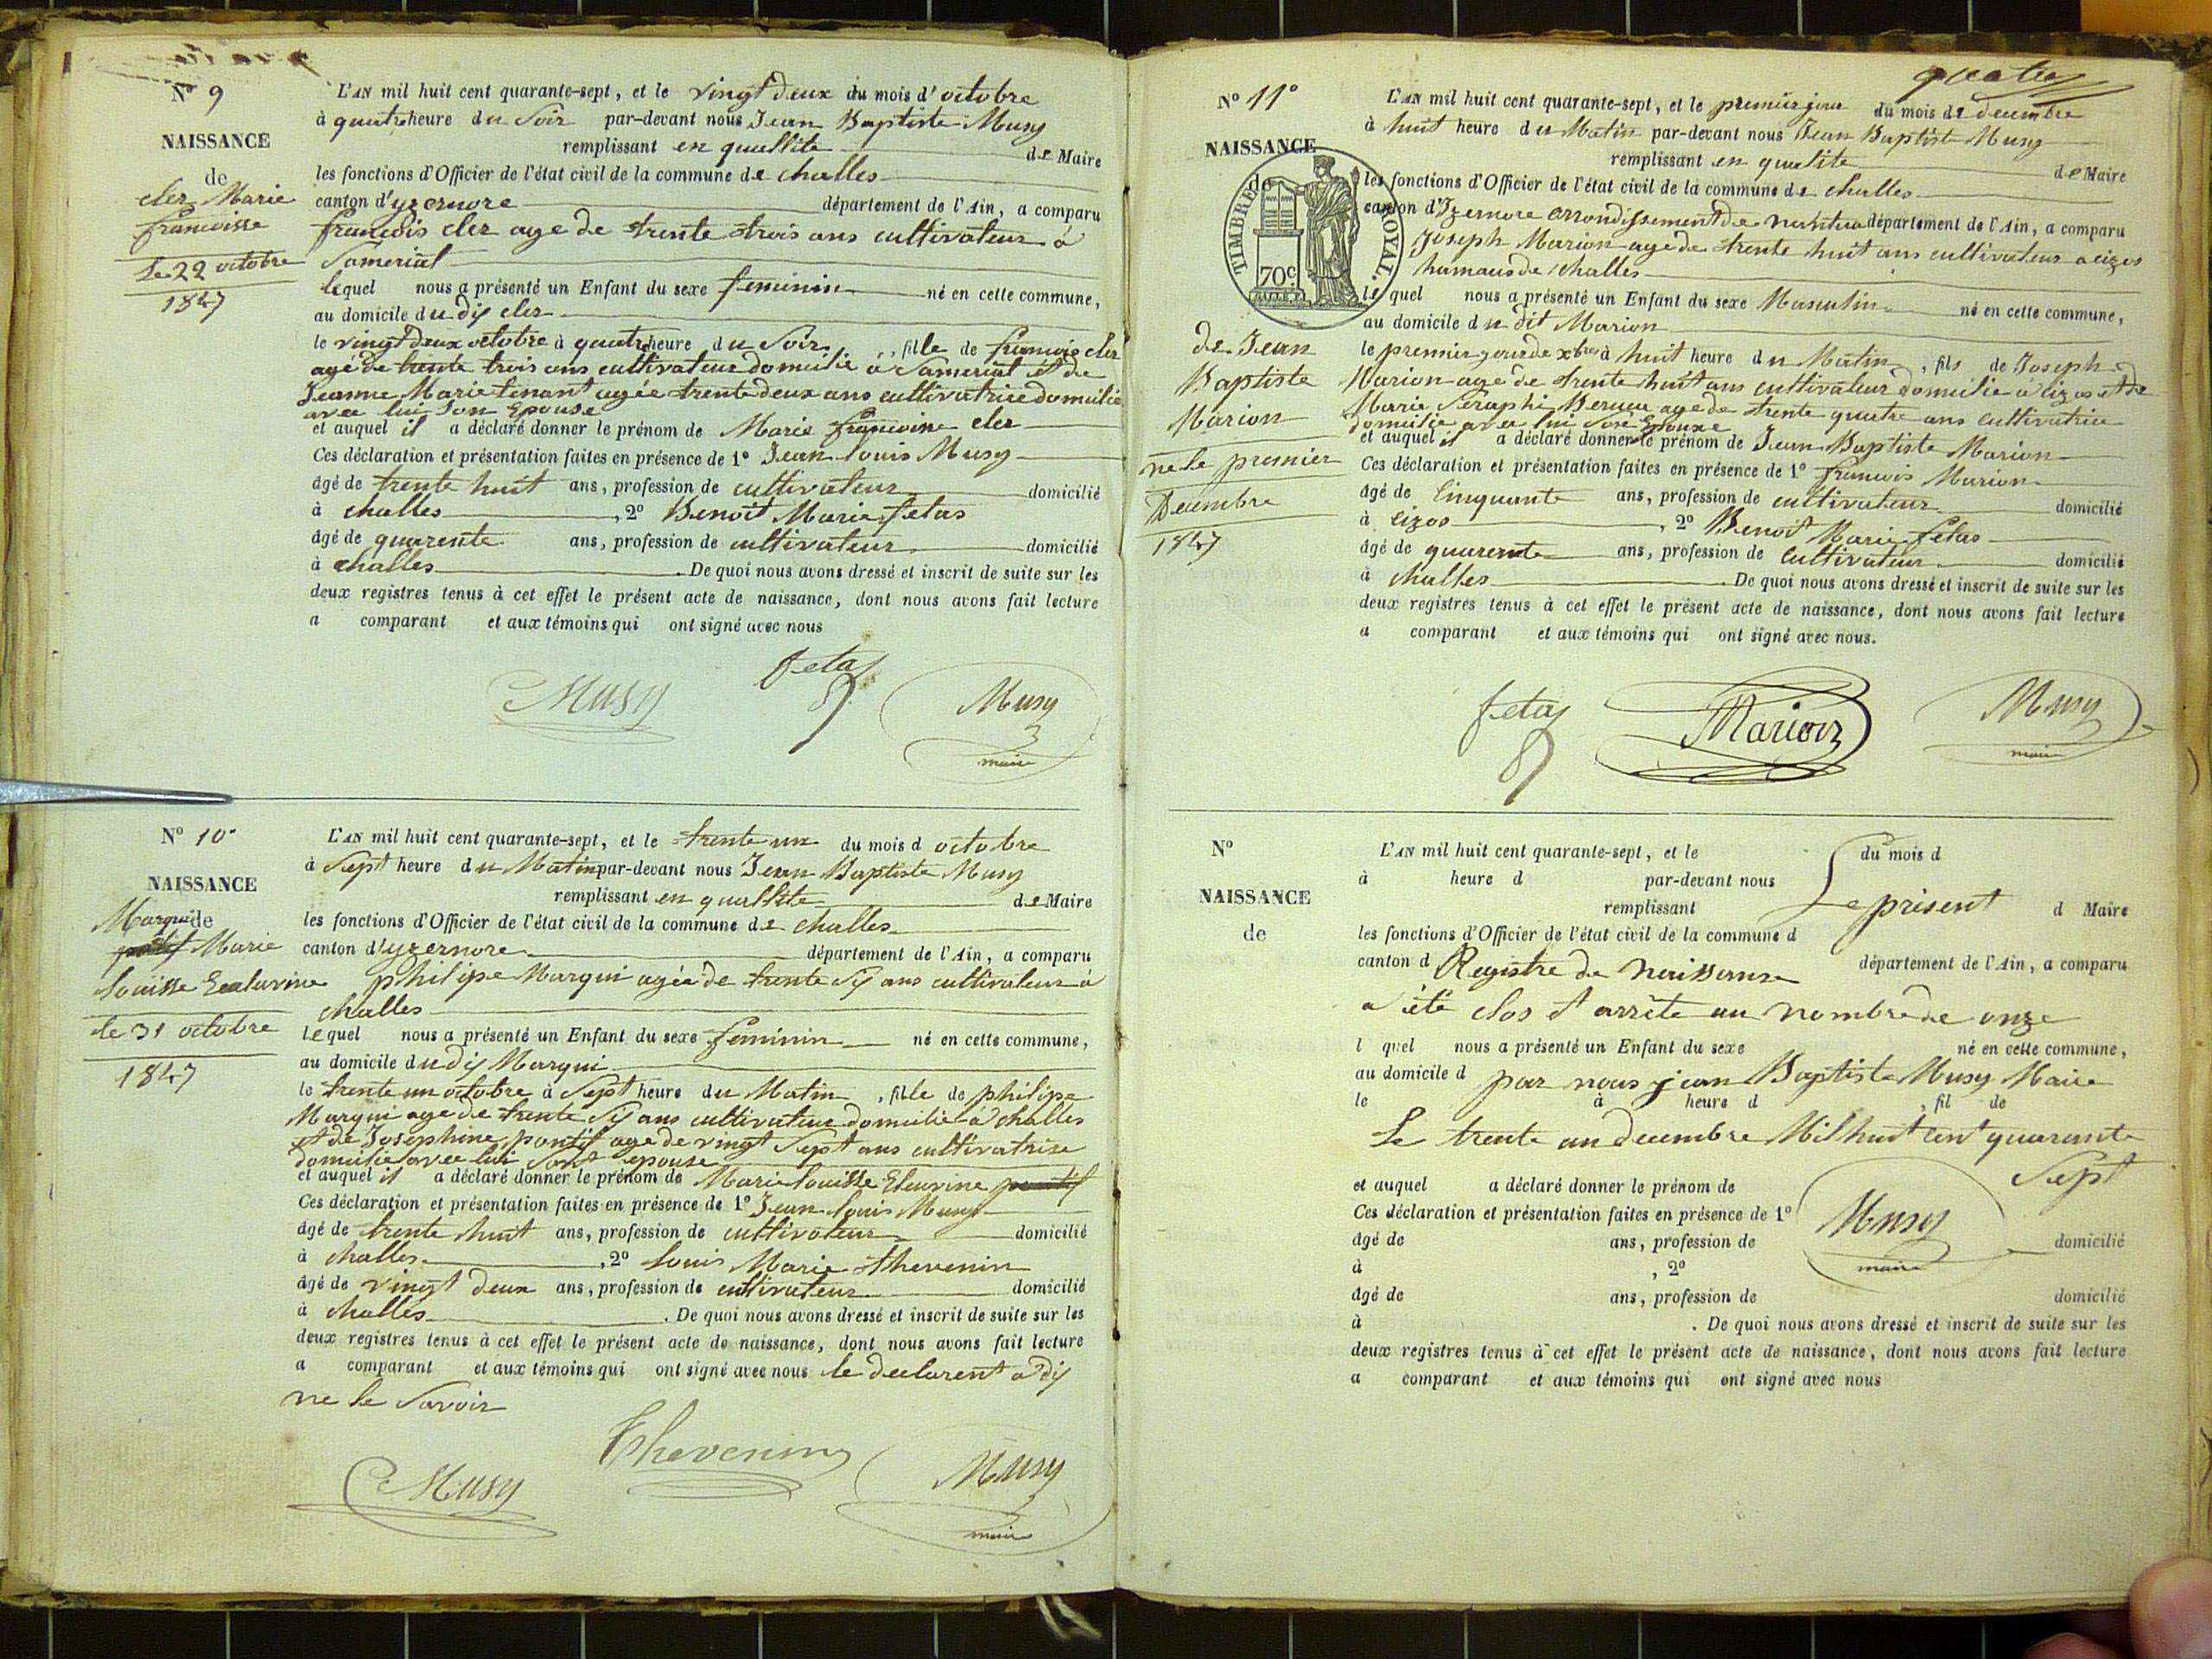 N° 9
NAISSANCE
de
cler Marie
francoisse
le 22 octobre
1847
L'AN mil huit cent quarante-sept, et le vingt deux du mois d'octobre
à quatre heure du Soir par-devant nous Jean Baptiste Musy
remplissant en quallite de Maire
les fonctions d'Officier de l'état civil de la commune de challes
canton d'yzernore département de l'Ain, a comparu
francois cler age de trente trois ans cultivateur à
Samerial
lequel nous a présenté un Enfant du sexe feminin né en cette commune,
au domicile du dis cler
le vingt deux octobre à quatre heure du Soir, fille de francois cler
age de trente trois ans cultivateur domicilie à Samerial et de
Jeanne Marie tenant agée trente deux ans cultivatrice domicilie
avec lui Son Epouse
et auquel il a déclaré donner le prénom de Marie francoise cler
Ces déclaration et présentation faites en présence de 1° Jean Louis Musy
âgé de trente huit ans, profession de cultivateur domicilié
à challes, 2° Benoit Marie fetas
âgé de quarente ans, profession de cultivateur domicilié
à challes. De quoi nous avons dressé et inscrit de suite sur les
deux registres tenus à cet effet le présent acte de naissance, dont nous avons fait lecture
a comparant et aux témoins qui ont signé avec nous
Musy fetas Musy
maire
N° 10°
NAISSANCE
de
Marqui
Marie
Louisse
le 31 octobre
1847
L'AN mil huit cent quarante-sept, et le trente un du mois d octobre
à Sept heure du Matin par-devant nous Jean Baptiste Musy
remplissant en quallite de Maire
les fonctions d'Officier de l'état civil de la commune de challes
canton d'yzernore département de l'Ain, a comparu
philipe Marqui agée de trente Sis ans cultivateur à
challes
lequel nous a présenté un Enfant du sexe feminin né en cette commune,
au domicile du dis Marqui
le trente un octobre à Sept heure du Matin, fille de philipe
Marqui age de trente Sis ans cultivateur domicilie à challes
et de Josephine pontif age de vingt Sept ans cultivatrise
domicilie avec lui Sont epouse
et auquel il a déclaré donner le prénom de Marie louisse
Ces déclaration et présentation faites en présence de 1° Jean Louis Musy
âgé de trente huit ans, profession de cultivateur domicilié
à challes, 2° Louis Marie thevenin
âgé de vingt deux ans, profession de cultivateur domicilié
à challes. De quoi nous avons dressé et inscrit de suite sur les
deux registres tenus à cet effet le présent acte de naissance, dont nous avons fait lecture
a comparant et aux témoins qui ont signé avec nous le declarent a dis
ne le Savoir
Musy Thevenin Musy
maire
quatre
N° 11°
NAISSANCE
de
TIMBRE ROYAL
70c
de Jean
Baptiste
Marion
ne le premier
Decembre
1847
L'AN mil huit cent quarante-sept, et le premier jour du mois de decembre
à huit heure du Matin par-devant nous Jean Baptiste Musy
remplissant en qualite de Maire
les fonctions d'Officier de l'état civil de la commune de challes
canton d'Izernore arrondissement de nantua département de l'Ain, a comparu
Joseph Marion age de trente huit ans cultivateur a cizos
hamaus de challes
lequel nous a présenté un Enfant du sexe Masculin né en cette commune,
au domicile du dit Marion
le premier jour de xbre à huit heure du Matin, fils de Joseph
Marion age de trente huit ans cultivateur domicilie à cizos et de
Marie Seraphi age de trente quatre ans cultivatrice
domicilie avec lui Son Epouse
et auquel il a déclaré donner le prénom de Jean Baptiste Marion
Ces déclaration et présentation faites en présence de 1° francois Marion
âgé de Cinquante ans, profession de cultivateur domicilié
à cizos, 2° Benoit Marie fetas
âgé de quarente ans, profession de cultivateur domicilié
à challes. De quoi nous avons dressé et inscrit de suite sur les
deux registres tenus à cet effet le présent acte de naissance, dont nous avons fait lecture
a comparant et aux témoins qui ont signé avec nous.
fetas Marion Musy
maire
N°
NAISSANCE
de
L'AN mil huit cent quarante-sept, et le du mois d
à heure d par-devant nous
remplissant Le présent d Maire
les fonctions d'Officier de l'état civil de la commune d
canton d Registre de Naissance département de l'Ain, a comparu
a été clos et arrête au nombre de onze
l quel nous a présenté un Enfant du sexe né en cette commune,
au domicile d par nous jean Baptiste Musy Maire
le à heure d , fil de
Le trente un decembre Mil huit cent quarante
Sept
et auquel a déclaré donner le prénom de
Ces déclaration et présentation faites en présence de 1°
Musy
âgé de ans, profession de domicilié
à , 2° maire
âgé de ans, profession de domicilié
à . De quoi nous avons dressé et inscrit de suite sur les
deux registres tenus à cet effet le présent acte de naissance, dont nous avons fait lecture
a comparant et aux témoins qui ont signé avec nous